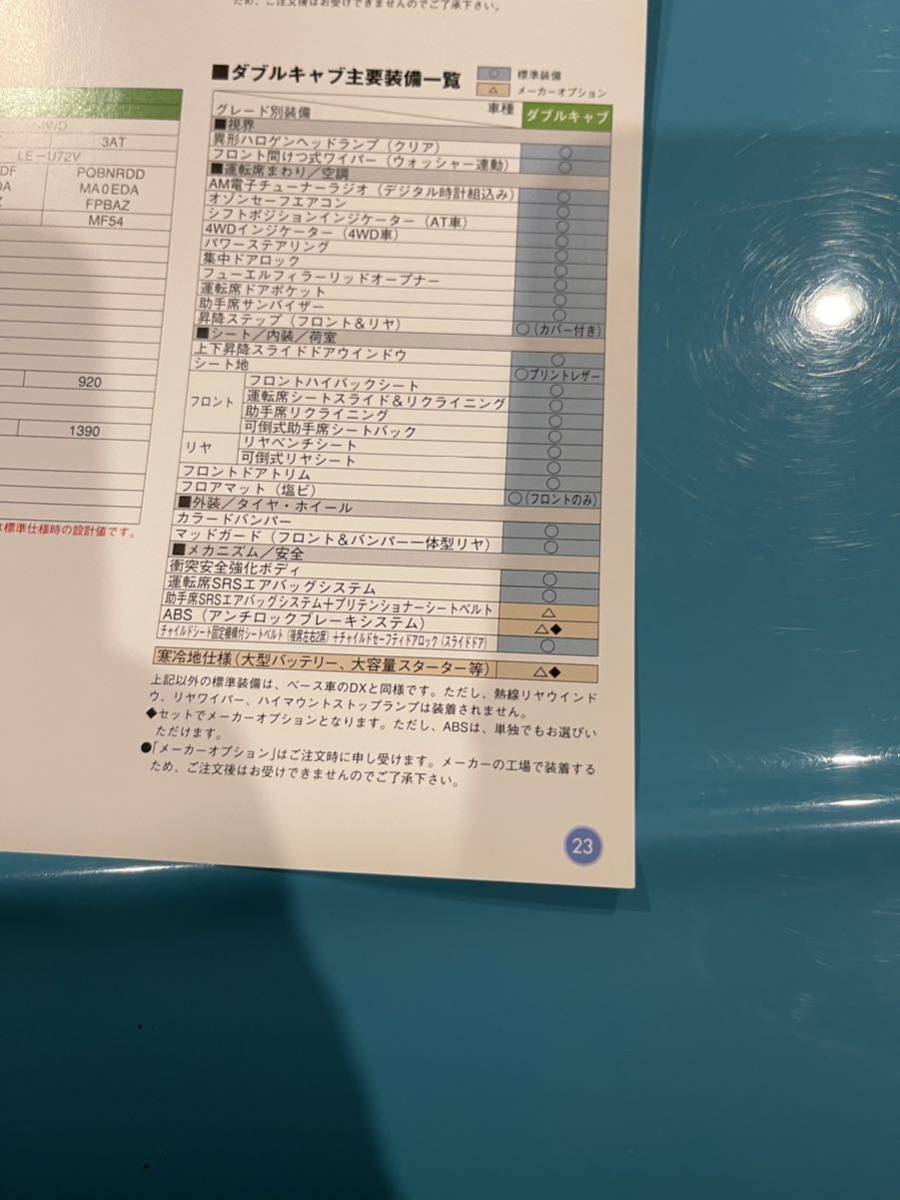 ため、ご注文後はお受けできませんのでご了承下さい。
■ダブルキャブ主要装備一覧
○ 標準装備
△ メーカーオプション
車種
グレード別装備
ダブルキャブ
■視界
異形ハロゲンヘッドランプ（クリア） ○
フロント間けつ式ワイパー（ウォッシャー連動） ○
■運転席まわり／空調
AM電子チューナーラジオ（デジタル時計組込み） ○
オゾンセーフエアコン ○
シフトポジションインジケーター（AT車） ○
4WDインジケーター（4WD車） ○
パワーステアリング ○
集中ドアロック ○
フューエルフィラーリッドオープナー ○
運転席ドアポケット ○
助手席サンバイザー ○
昇降ステップ（フロント＆リヤ） ○（カバー付き）
■シート／内装／荷室
上下昇降スライドドアウインドウ ○
シート地 ○プリントレザー
フロント
フロントハイバックシート ○
運転席シートスライド＆リクライニング ○
助手席リクライニング ○
可倒式助手席シートバック ○
リヤ
リヤベンチシート ○
可倒式リヤシート ○
フロントドアトリム ○
フロアマット（塩ビ） ○（フロントのみ）
■外装／タイヤ・ホイール
カラードバンパー ○
マッドガード（フロント＆バンパー一体型リヤ） ○
■メカニズム／安全
衝突安全強化ボディ ○
運転席SRSエアバッグシステム ○
助手席SRSエアバッグシステム＋プリテンショナーシートベルト △
ABS（アンチロックブレーキシステム） △◆
チャイルドシート固定機構付シートベルト（後席左右2席）＋チャイルドセーフティドアロック（スライドドア） ○
寒冷地仕様（大型バッテリー、大容量スターター等） △◆
上記以外の標準装備は、ベース車のDXと同様です。ただし、熱線リヤウインド
ウ、リヤワイパー、ハイマウントストップランプは装着されません。
◆セットでメーカーオプションとなります。ただし、ABSは、単独でもお選びい
ただけます。
●「メーカーオプション」はご注文時に申し受けます。メーカーの工場で装着する
ため、ご注文後はお受けできませんのでご了承下さい。
23
4WD
3AT
LE－U72V
PQBNRDD
MA0EDA
FPBAZ
MF54
920
1390
標準仕様時の設計値です。